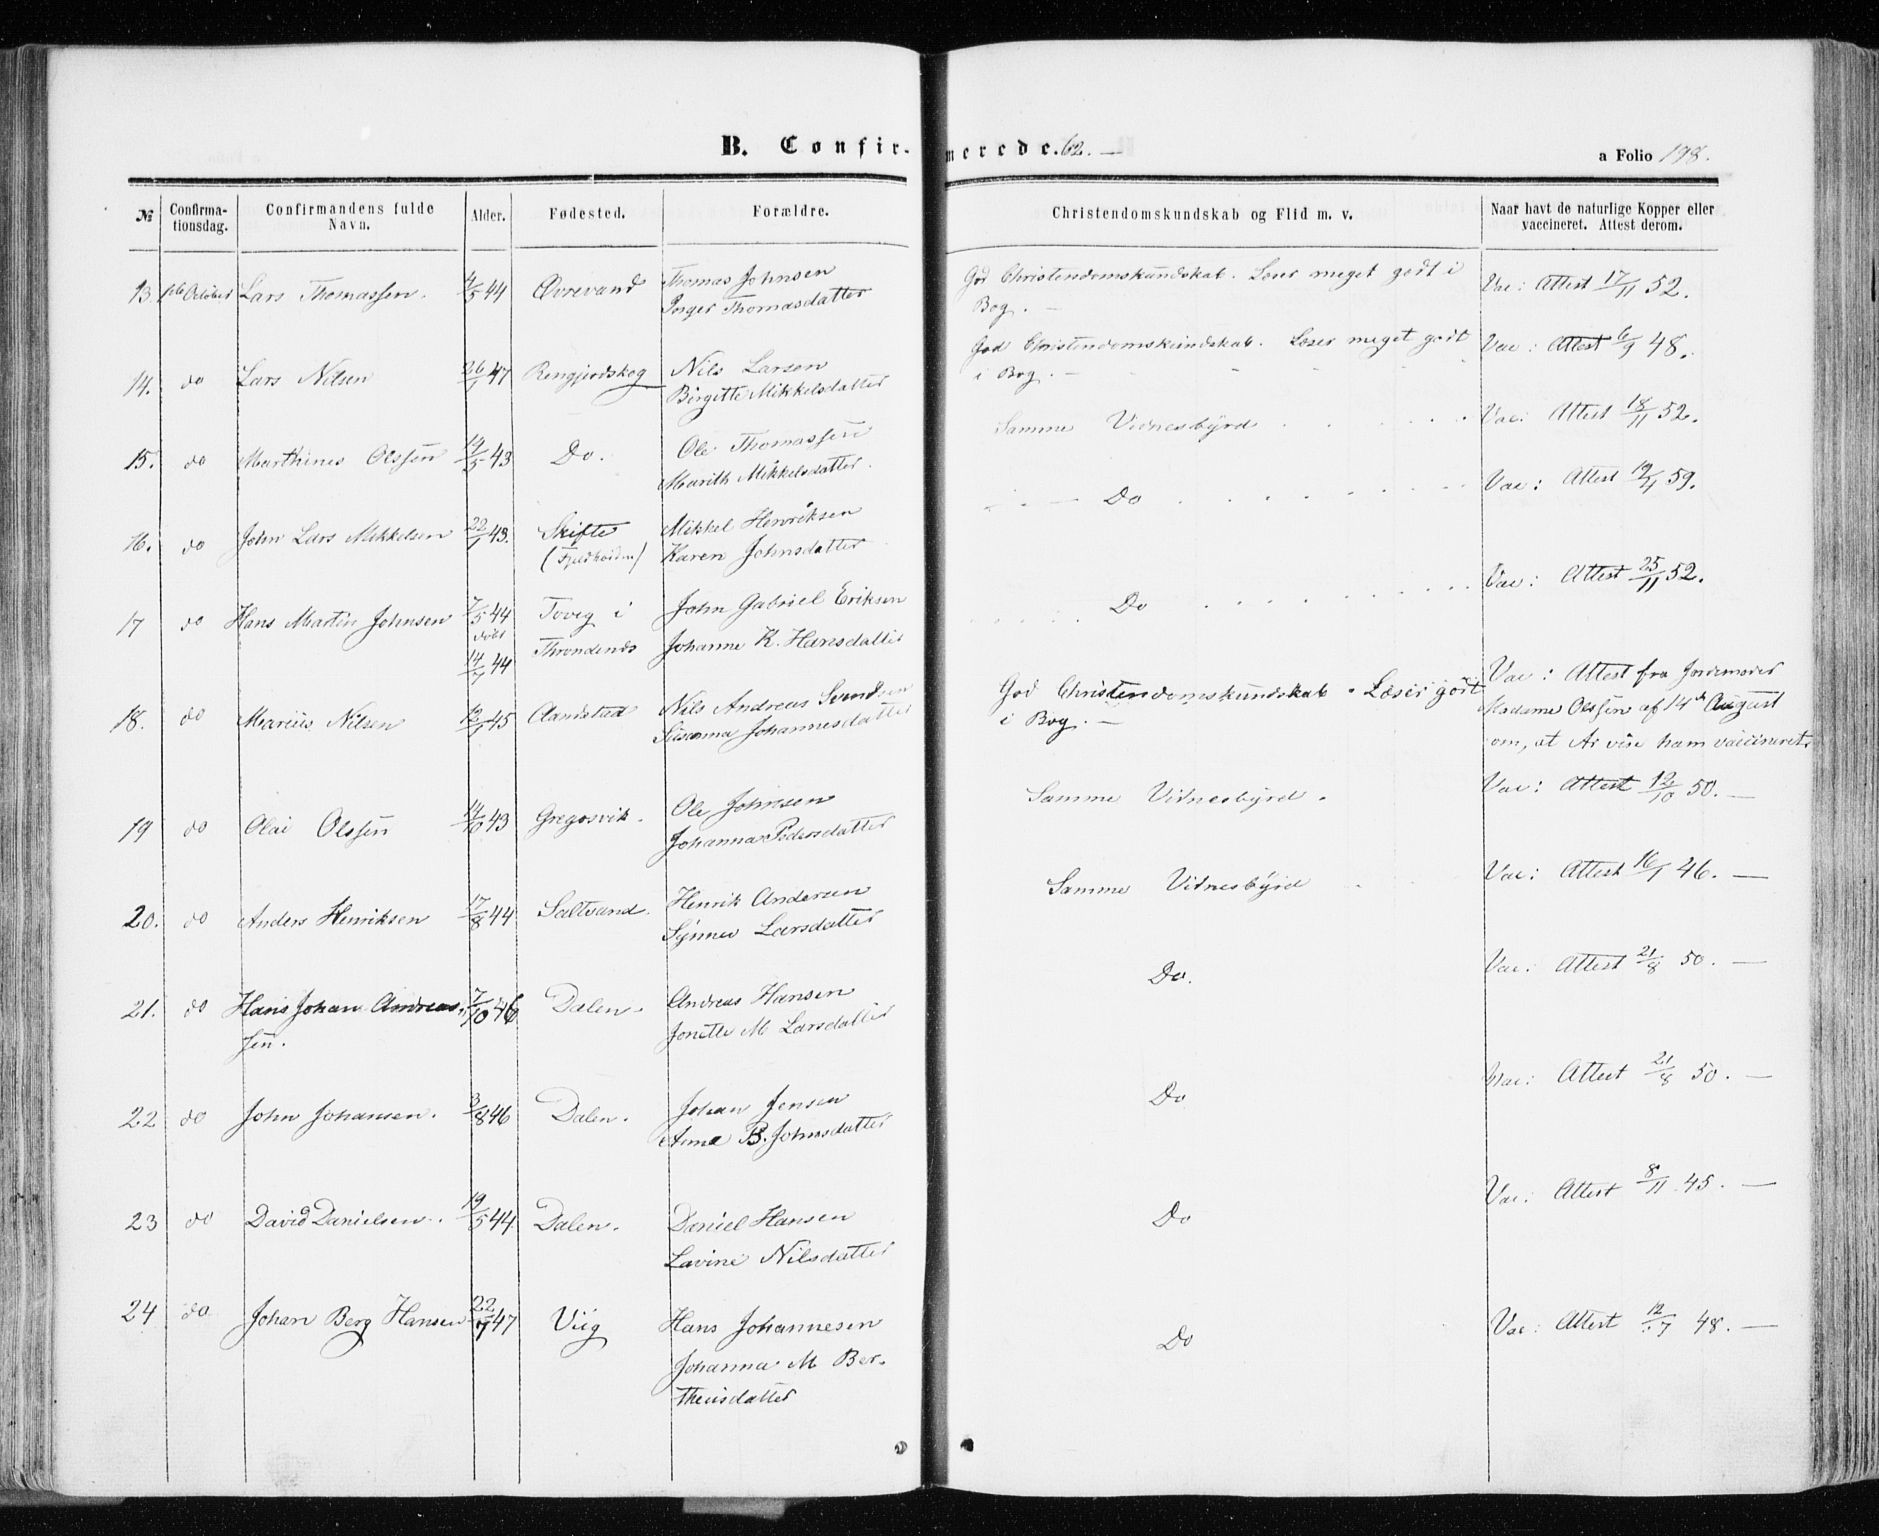 B. Confirmerede. 62. —
a Folio 198.
№ Confirmationsdag. Confirmandens fulde Navn. Alder. Fødested. Forældre. Christendomskundskab og Flid m. v. Naar havt de naturlige Kopper eller vaccineret. Attest derom.
13. 1ste October Lars Thomassen. 4/5 44 Øvrevand Thomas Johnsen God Christendomskundskab. Læser meget godt i Vac: Attest 17/11 52.
Inger Thomasdatter Bog. —
14. do Lars Nilsen 26/1 47 Rengjordskog Nils Larsen God Christendomskundskab. Læser meget godt Vac: Attest 6/9 48.
Birgitte Mikkelsdatter i Bog. —
15. do Marthines Olssen 19/5 43 Do. Ole Thomassen Samme Vidnesbyrd Vac: Attest 18/11 52.
Marith Mikkelsdatter.
16. do John Lars Mikkelsen 22/1 43. Skifte Mikkel Henriksen — Do Vac: Attest 19/4 59.
(Fjeldheiden) Karen Johnsdatter
17 do Hans Martin Johnsen 7/5 44 Toveg i John Gabriel Eriksen Do Vac: Attest 25/11 52.
døbt
14/7 44 Throndenes Johanne K. Hansdatter
18. do Marius Nilsen 12/1 45 Aandstad Nils Andreas Svendsen God Christendomskundskab. Læser godt Vac: Attest fra Jordemoder
Susanna Johannesdatter i Bog. — Madame Olssen af 14de August
om, at Ar vise ham vaccineret.
19 do Olai Olssen 14/10 43 Gregosvik. Ole Johnsen Samme Vidnesbyrd. Vac: Attest 12/10 50. —
Johanna Pedersdatter
20. do Anders Henriksen 17/8 44 Saltvand. Henrik Andersen Samme Vidnesbyrd Vac: Attest 16/1 46. —
Synnev Larsdatter
21. do Hans Johan Andreas- 7/10 46 Dalen. Andreas Hansen Do. Vac: Attest 21/8 50. —
sen. Jonette M Larsdatter
22 do John Johansen. 3/8 46 Dalen. Johan Jensen Do Vac: Attest 21/8 50. —
Anna B. Johnsdatter
23 do David Danielsen. 19/5 44. Dalen. Daniel Hansen Do Vac: Attest 8/11 45. —
Lavine Nilsdatter
24 do Johan Berg Hansen 22/7 47 Viig Hans Johannesen Do Vac: Attest 12/7 48. —
Johanna M Ber-
theusdatter